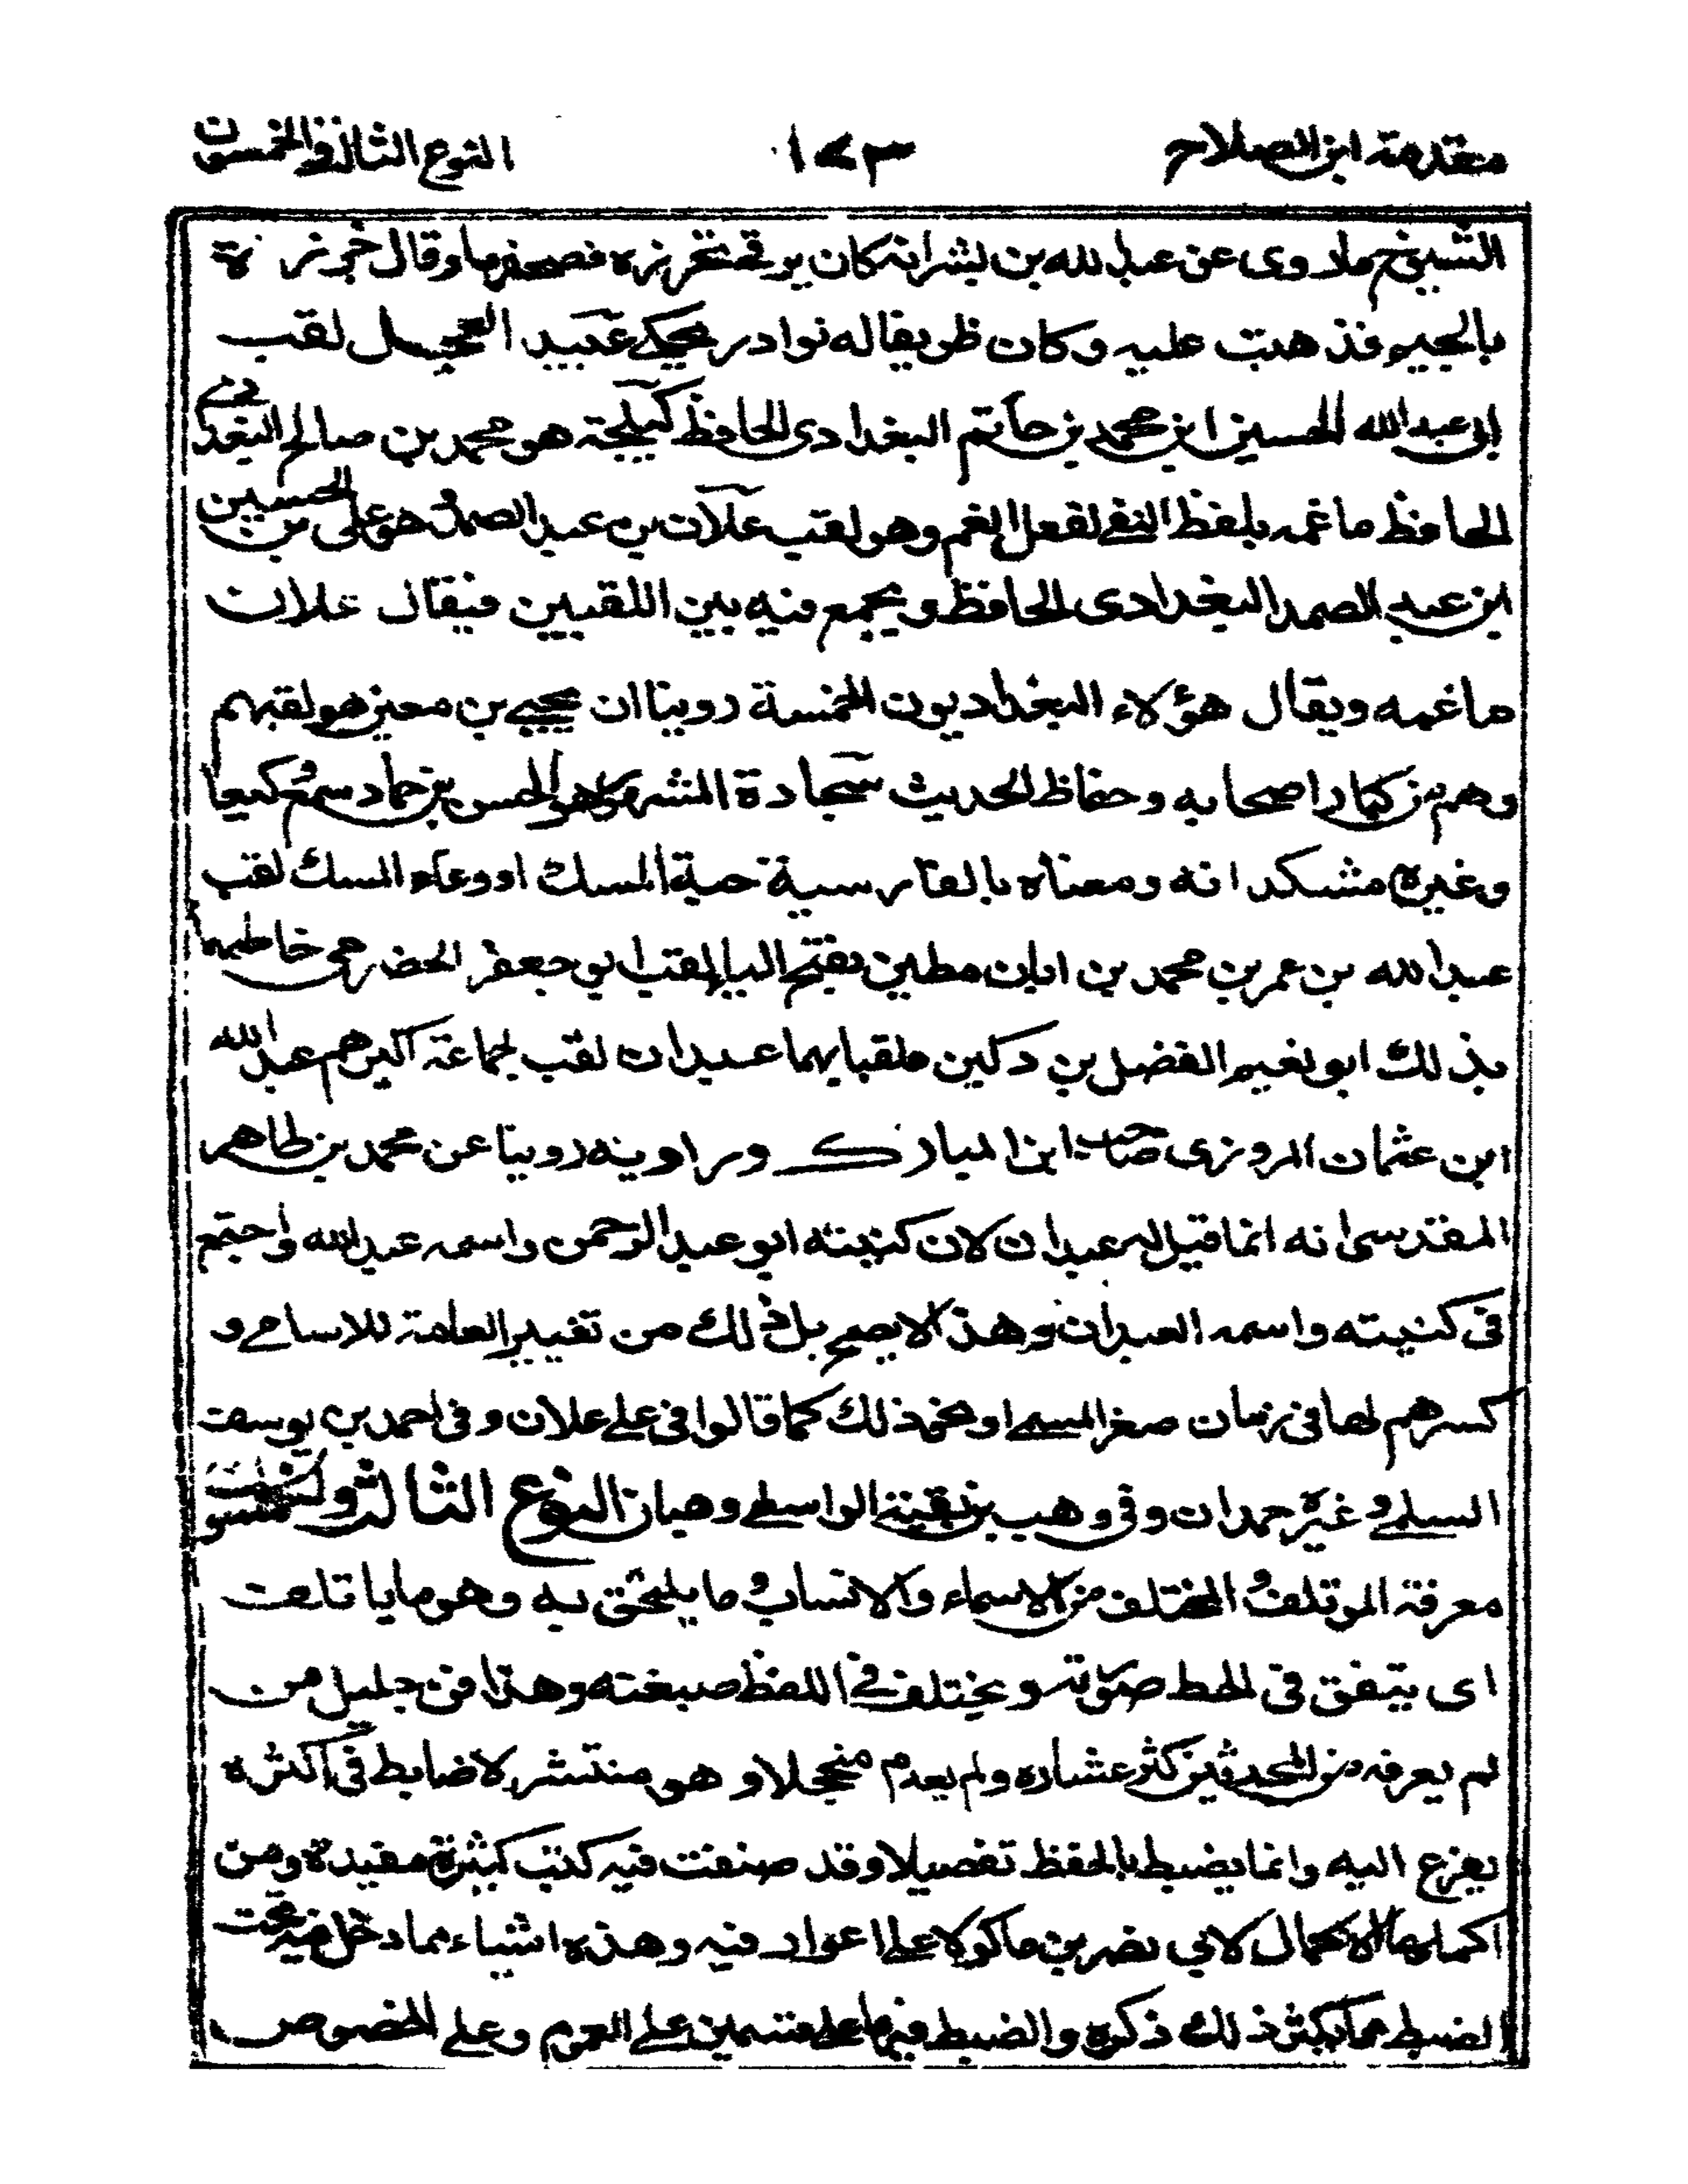 مقدمة ابن الصلاح ١٧٣ النوع الثالث والخمسون
الشيخ ما روى عن عبد الله بن بشر انه كان يرقى بخرزة فصحفها وقال جزرة
بالجيم فذهبت عليه وكان ظريفا له نوادر يحكى عبيد العجل لقب
ابى عبد الله الحسين ابن محمد بن حاتم البغدادى الحافظ كيلجة هو محمد بن صالح البغدادى
الحافظ ما غمه بلفظ النفى لفعل الغم وهو لقب علان بن عبد الصمد وهو على بن الحسين
ابن عبد الصمد البغدادى الحافظ ويجمع فيه بين اللقبين فيقال علان
ما غمه ويقال هؤلاء البغداديون الخمسة روينا ان يحيى بن معين هو لقبهم
وهم من كبار اصحابه وحفاظ الحديث سجادة المشهور هو الحسن بن حماد سمع وكيعا
وغيره مشكدانه ومعناه بالفارسية حبة المسك او وعاء المسك لقب
عبد الله بن عمر بن محمد بن ابان مطين بفتح اليا لقب ابى جعفر الحضرمى خاطبهما
بذلك ابو نعيم الفضل بن دكين فلقبا بهما عبدان لقب لجماعة اكبرهم عبد الله
ابن عثمان المروزى صاحب ابن المبارك وراويه روينا عن محمد بن طاهر
المقدسى انه انما قيل له عبدان لان كنيته ابو عبد الرحمن واسمه عبد الله واجتمع
فى كنيته واسمه العبدان وهذا لا يصح بل ذلك من تغيير العامة للاسامى و
كسرهم لها فى زمان صغر المسمى او نحو ذلك كما قالوا فى على علان وفى احمد بن يوسف
السلمى وغيره حمدان وفى وهب بن بقية الواسطى وهبان النوع الثالث والخمسون
معرفة الموتلف والمختلف من الاسماء والانساب وما يلتحق به وهو ما ياتلف
اى يتفق فى الخط صورته ويختلف فى اللفظ صيغته وهذا فن جليل من
لم يعرفه من المحدثين كثر عثاره ولم يعدم مخجلا وهو منتشر لا ضابط فى اكثره
يفزع اليه وانما يضبط بالحفظ تفصيلا وقد صنفت فيه كتب كثيرة مفيدة ومن
اكملها الاكمال لابى نصر بن ماكولا على اعواز فيه وهذه اشياء مما دخل منه تحت
الضبط مما يكثر ذلك ذكره والضبط فيها على قسمين على العموم وعلى الخصوص